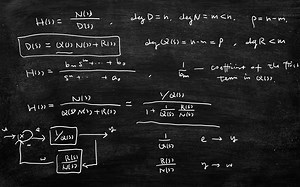 H(s) = N(s)/D(s) , deg D = n, deg N = m < n, p = n-m.
D(s) = Q(s) N(s) + R(s) deg Q(s) = n-m = p , deg R < m
H(s) = (b_m s^m + ... + b_0)/(s^n + ... + a_0) , 1/b_m coefficient of the first term in Q(s).
H(s) = N(s)/(Q(s) N(s) + R(s)) = (1/Q(s))/(1 + 1/Q(s) R(s)/N(s))
u e 1/Q(s) y 1/Q(s) e → y
w R(s)/N(s) R(s)/N(s) y → w